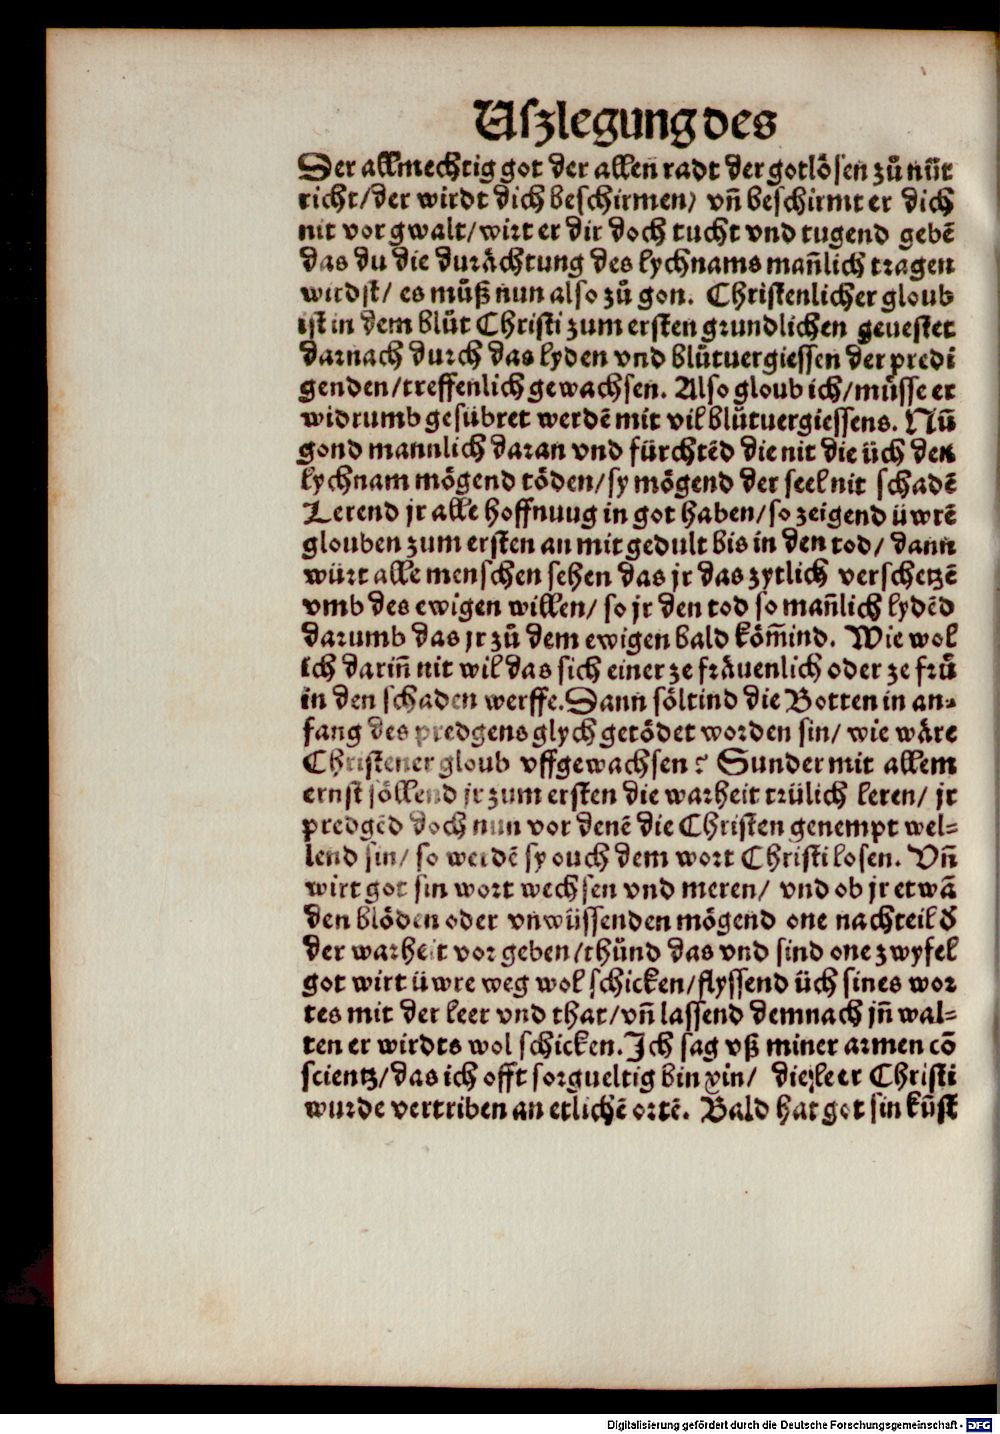 Uſzlegung des
Der allmechtig got der allen radt der gotlöſen zů nüt
richt/der wirdt dich beſchirmen/ vn̄ beſchirmt er dich
nit vor gwalt/wirt er dir doch tucht vnd tugend gebē
das du die durächtung des lychnams man̄lich tragen
wirdſt/ es můß nun alſo zů gon. Chriſtenlicher gloub
iſt in dem blůt Chriſti zum erſten grundlichen geueſtet
darnach durch das lyden vnd blůtuergieſſen der predi
genden/treffenlich gewachſen. Alſo gloub ich/müſſe er
widrumb gefübret werdē mit vil blůtuergieſſens. Nū
gond mannlich daran vnd fürchtēd die nit die üch den
lychnam mögend töden/ſy mögend der ſeel nit ſchadē
Lerend jr alle hoffnuug in got haben/ſo zeigend üwrē
glouben zum erſten an mit gedult bis in den tod/ dann
würt alle menſchen ſehen das jr das zytlich verſchetzē
vmb des ewigen willen/ ſo jr den tod ſo man̄lich lydēd
darumb das jr zů dem ewigen bald köm̄ind. Wie wol
ich darin̄ nit wil das ſich einer ze fräuenlich oder ze frů
in den ſchaden werffe. Dann ſöltind die Botten in an⸗
fang des predgens glych getödet worden ſin/ wie wäre
Chriſtener gloub vffgewachſen? Sunder mit allem
ernſt ſöllend jr zum erſten die warheit trülich leren/ jr
predgēd doch nun vor denē die Chriſten genempt wel⸗
lend ſin/ ſo werdē ſy ouch dem wort Chriſti loſen. Vn̄
wirt got ſin wort wechſen vnd meren/ vnd ob jr etwā
den blöden oder vnwüſſenden mögend one nachteil d̄
der warheit vor geben/thůnd das vnd ſind one zwyfel
got wirt üwre weg wol ſchicken/flyſſend üch ſines wor
tes mit der leer vnd that/vn̄ laſſend demnach jn̄ wal⸗
ten er wirdts wol ſchicken. Jch ſag vß miner armen cō
ſcientz/das ich offt ſorgueltig bin xin/ die leer Chriſti
wurde vertriben an etlichē ortē. Bald hat got ſin kūſt
Digitalisierung gefördert durch die Deutsche Forschungsgemeinschaft - DFG